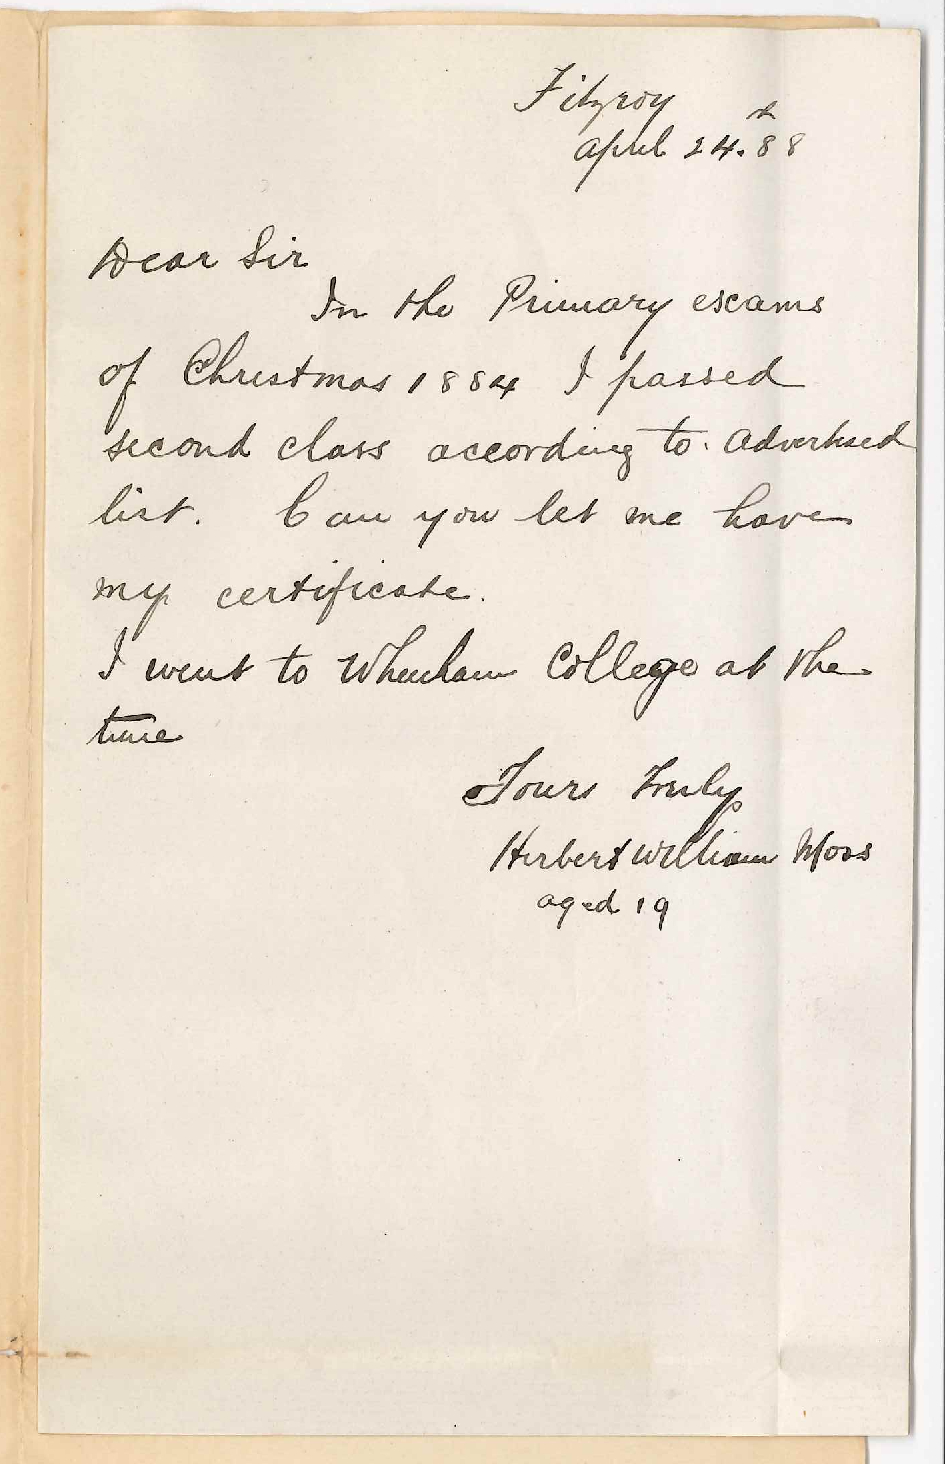 Fitzroy
April 24th. 88
Dear Sir
In the Primary exams
of Christmas 1884 I passed
second class according to advertised
list. Can you let me have
my certificate.
I went to Whinham College at the
time
Yours Truly
Herbert William Moss
aged 19